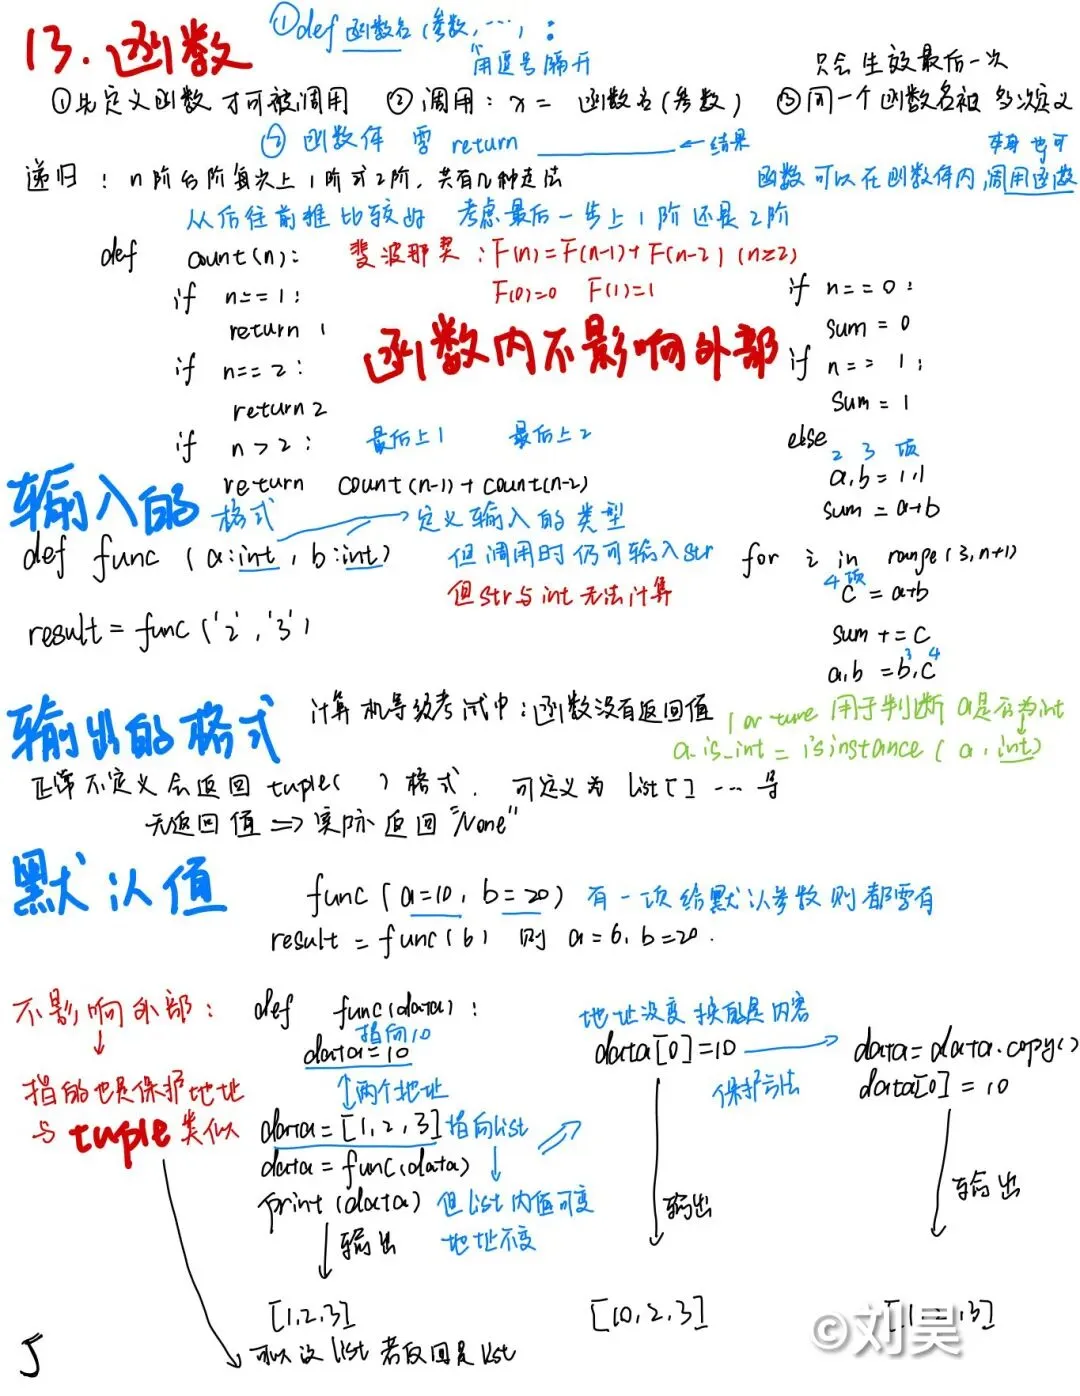 13. 函数
①def 函数名(参数, …, ) :
用逗号隔开
只会生效最后一次
①先定义函数才可被调用 ②调用: x = 函数名(参数) ③同一个函数名被多次定义
② 函数体 需 return ________ ← 结果
本身也可
递归: n阶台阶每次上1阶或2阶, 共有几种走法
函数可以在函数体内调用函数
从后往前推比较好 考虑最后一步上1阶还是2阶
def count(n):
斐波那契: F(n)=F(n-1)+F(n-2) (n≥2)
F(0)=0 F(1)=1
if n==1:
return 1
if n==2:
return 2
if n>2:
最后上1 最后上2
return count(n-1)+count(n-2)
函数内不影响外部
if n==0:
sum=0
if n==1:
sum=1
else
2 3 项
a,b=1,1
sum=a+b
for i in range(3,n+1)
4项
c=a+b
sum+=c
3 4
a,b=b,c
输入的
格式 → 定义输入的类型
def func (a:int, b:int)
但调用时仍可输入str
但str与int无法计算
result=func('2','3')
输出的格式
计算机等级考试中: 函数没有返回值
用于判断a是否为int
a_is_int = isinstance(a, int)
正常不定义会返回 tuple( ) 格式. 可定义为 list[] … 等
无返回值 ⇒ 实际返回"None"
默认值
func(a=10, b=20) 有一项给默认参数则都需有
result = func(6) 则 a=6, b=20.
不影响外部:
↓
指的也是保护地址
与tuple类似
def func(data):
指向10
data=10
↕两个地址
data=[1,2,3] 指向list
data=func(data)
print(data)
但list内值可变
地址不变
输出
[1,2,3]
地址没变 换的是内容
data[0]=10
保护方法
输出
[10,2,3]
data=data.copy()
data[0]=10
输出
[1,2,3]
可以设list 若返回是list
5
©刘昊